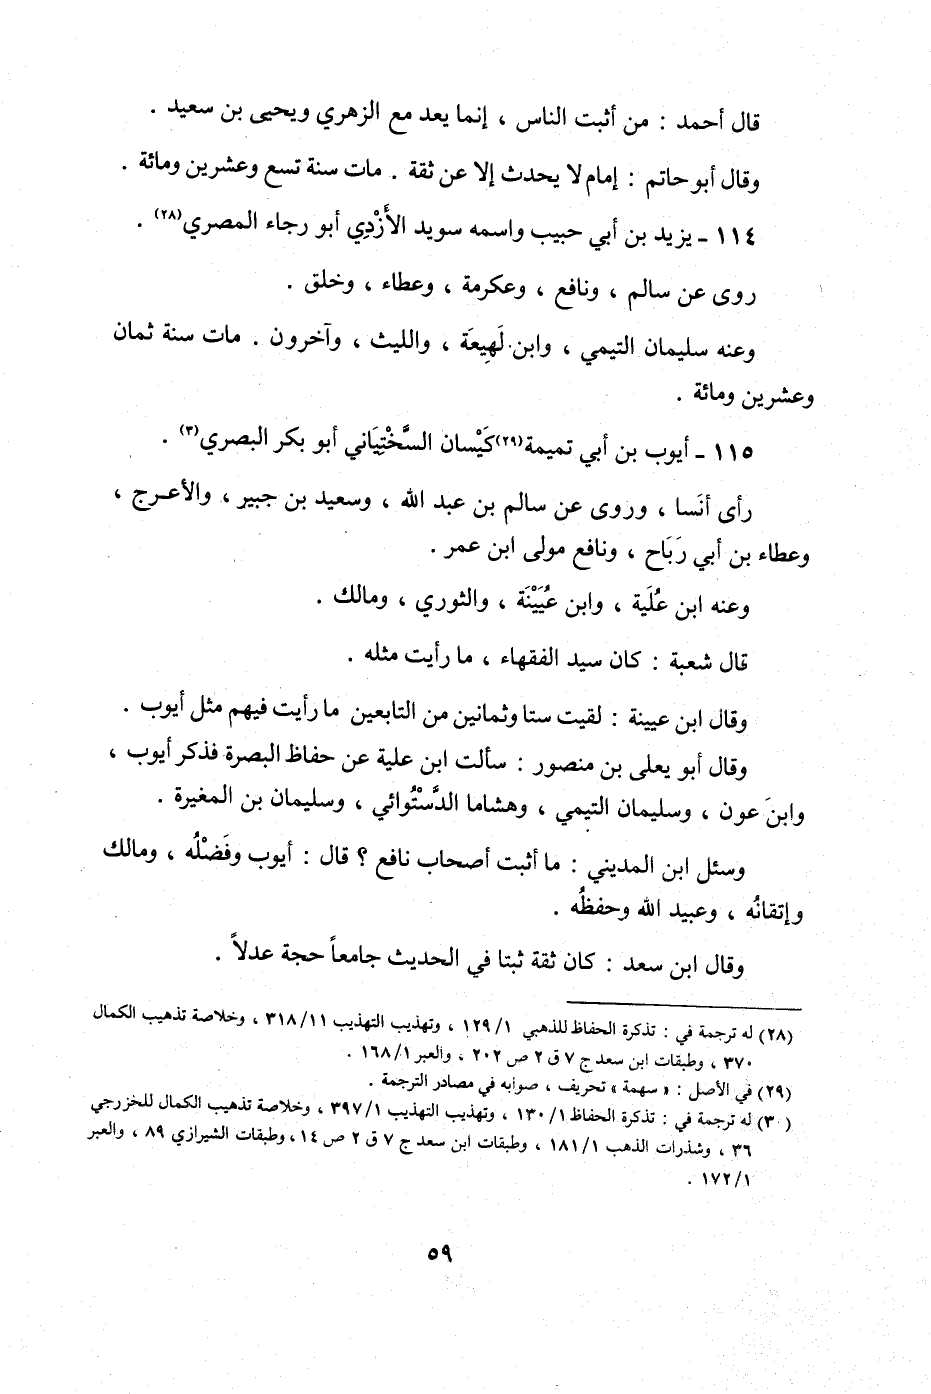 قال أحمد : من أثبت الناس ، إنما يعد مع الزهري ويحيى بن سعيد .
وقال أبو حاتم : إمام لا يحدث إلا عن ثقة . مات سنة تسع وعشرين ومائة .
١١٤ ـ يزيد بن أبي حبيب واسمه سويد الأَزْدِي أبو رجاء المصري(٢٨) .
روى عن سالم ، ونافع ، وعكرمة ، وعطاء ، وخلق .
وعنه سليمان التيمي ، وابن لَهِيعَة ، والليث ، وآخرون . مات سنة ثمان
وعشرين ومائة .
١١٥ ـ أيوب بن أبي تميمة(٢٩) كَيْسان السَّخْتِيَاني أبو بكر البصري(٣) .
رأى أنَسا ، وروى عن سالم بن عبد الله ، وسعيد بن جبير ، والأعرج ،
وعطاء بن أبي رَبَاح ، ونافع مولى ابن عمر .
وعنه ابن عُلَية ، وابن عُيَيْنَة ، والثوري ، ومالك .
قال شعبة : كان سيد الفقهاء ، ما رأيت مثله .
وقال ابن عيينة : لقيت ستا وثمانين من التابعين ما رأيت فيهم مثل أيوب .
وقال أبو يعلى بن منصور : سألت ابن علية عن حفاظ البصرة فذكر أيوب ،
وابنَ عون ، وسليمان التيمي ، وهشاما الدَّسْتُوائي ، وسليمان بن المغيرة .
وسئل ابن المديني : ما أثبت أصحاب نافع ؟ قال : أيوب وفَضْلُه ، ومالك
وإتقانُه ، وعبيد الله وحفظُه .
وقال ابن سعد : كان ثقة ثبتا في الحديث جامعاً حجة عدلاً .
(٢٨) له ترجمة في : تذكرة الحفاظ للذهبي ١/ ١٢٩ ، وتهذيب التهذيب ٣١٨/١١ ، وخلاصة تذهيب الكمال
٣٧٠ ، وطبقات ابن سعد ج ٧ ق ٢ ص ٢٠٢ ، والعبر ١٦٨/١ .
(٢٩) في الأصل : « سهمة » تحريف ، صوابه في مصادر الترجمة .
(٣٠) له ترجمة في : تذكرة الحفاظ ١٣٠/١ ، وتهذيب التهذيب ٣٩٧/١ ، وخلاصة تذهيب الكمال للخزرجي
٣٦ ، وشذرات الذهب ١٨١/١ ، وطبقات ابن سعد ج ٧ ق ٢ ص ١٤ ، وطبقات الشيرازي ٨٩ ، والعبر
١٧٢/١ .
٥٩